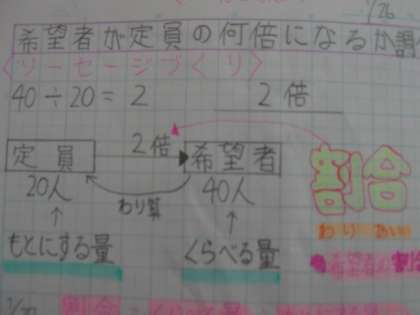 1/26
希望者が定員の何倍になるか調
〈ソーセージづくり〉
40÷20=2 2倍
定員 2倍 希望者
20人 わり算 40人
割合
わりあい
もとにする量 くらべる量
希望者の割合
割合